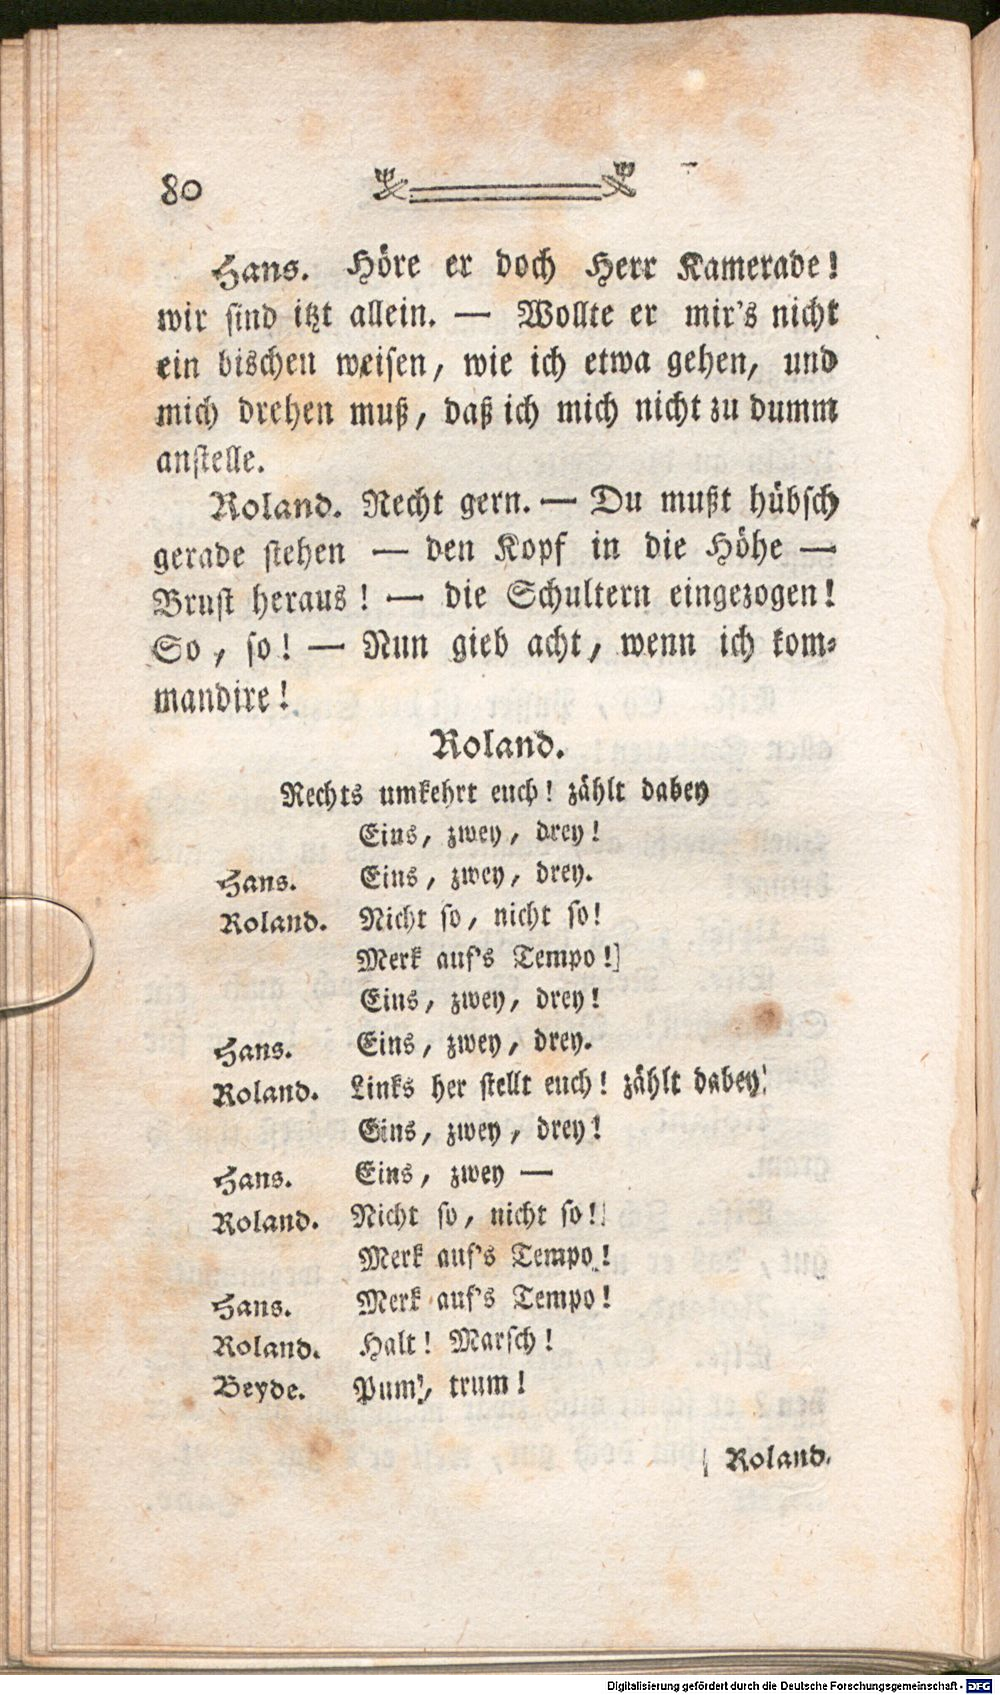 80
Hans. Höre er doch Herr Kamerade!
wir sind itzt allein. — Wollte er mir's nicht
ein bischen weisen, wie ich etwa gehen, und
mich drehen muß, daß ich mich nicht zu dumm
anstelle.
Roland. Recht gern. — Du mußt hübsch
gerade stehen — den Kopf in die Höhe —
Brust heraus! — die Schultern eingezogen!
So, so! — Nun gieb acht, wenn ich kom-
mandire!
Roland.
Rechts umkehrt euch! zählt dabey
Eins, zwey, drey!
Hans. Eins, zwey, drey.
Roland. Nicht so, nicht so!
Merk auf's Tempo!]
Eins, zwey, drey!
Hans. Eins, zwey, drey.
Roland. Links her stellt euch! zählt dabey!
Eins, zwey, drey!
Hans. Eins, zwey —
Roland. Nicht so, nicht so!
Merk auf's Tempo!
Hans. Merk auf's Tempo!
Roland. Halt! Marsch!
Beyde. Pum, trum!
Roland.
Digitalisierung gefördert durch die Deutsche Forschungsgemeinschaft - DFG